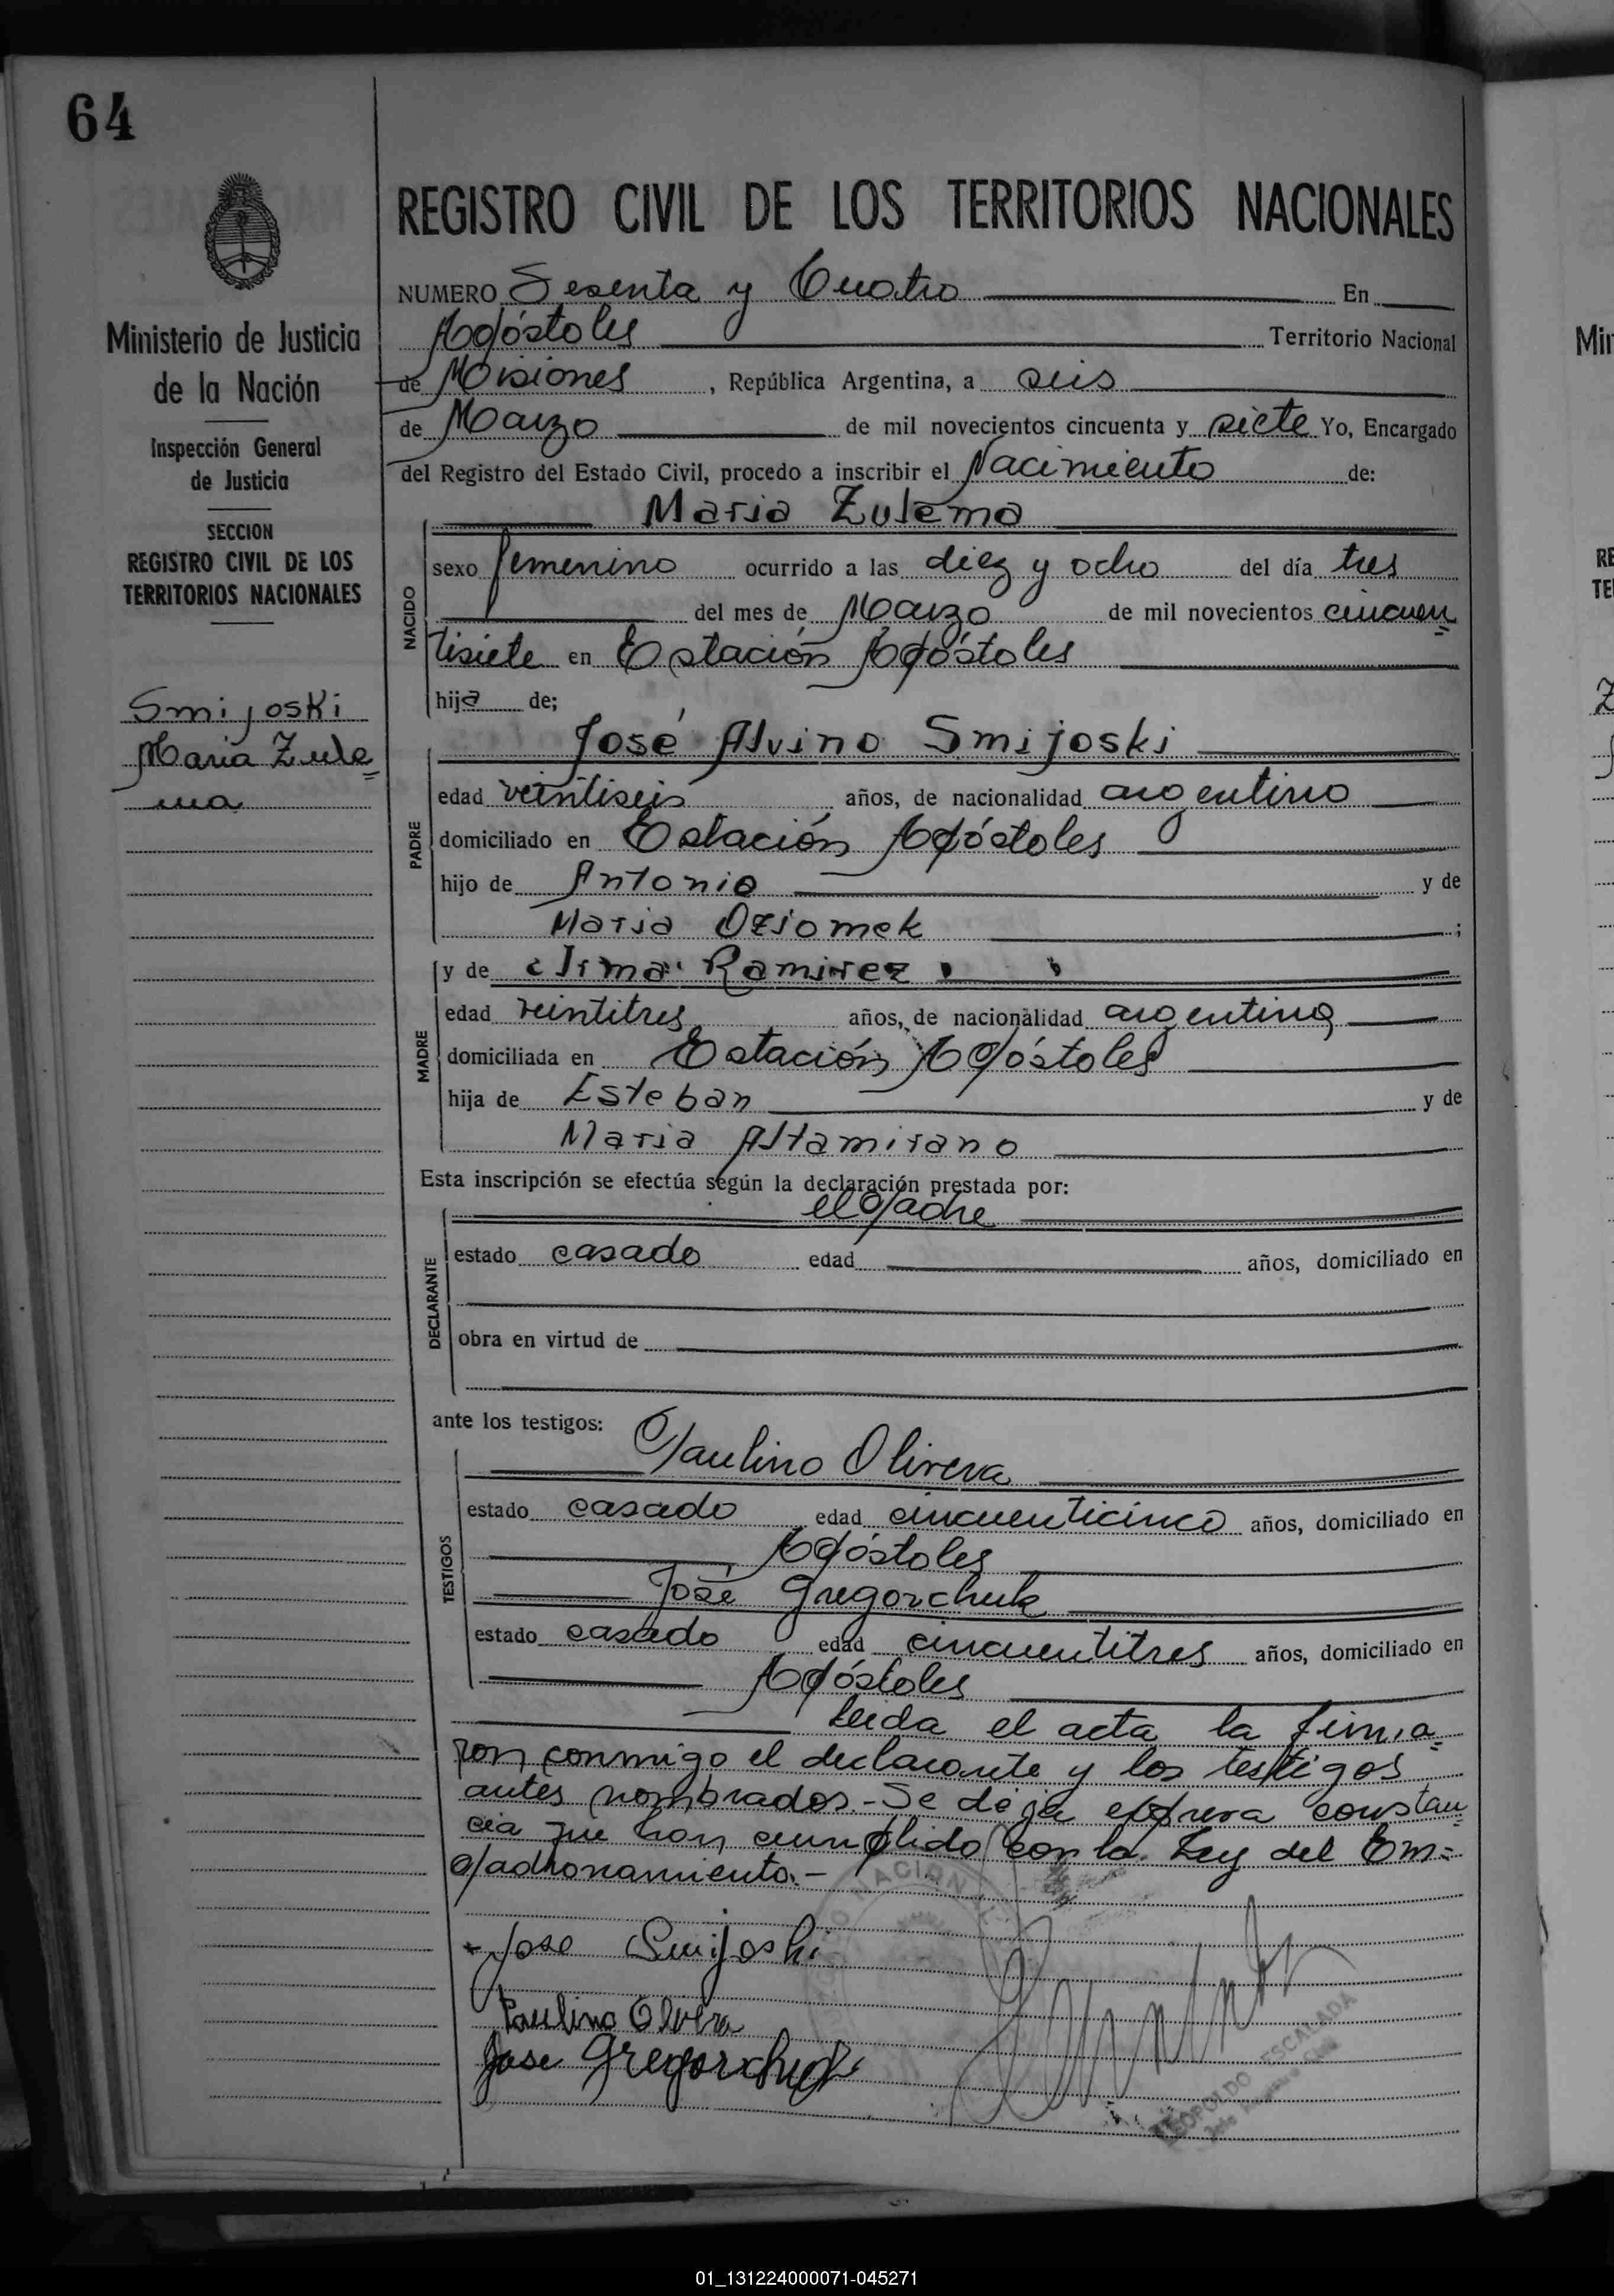 64
REGISTRO CIVIL DE LOS TERRITORIOS NACIONALES
NUMERO Sesenta y Cuatro En
Apóstoles Territorio Nacional
de Misiones, República Argentina, a seis
de Marzo de mil novecientos cincuenta y siete Yo, Encargado
del Registro del Estado Civil, procedo a inscribir el Nacimiento de:
Ministerio de Justicia
de la Nación
Inspección General
de Justicia
SECCION
REGISTRO CIVIL DE LOS
TERRITORIOS NACIONALES
Smijoski
Maria Zule=
ma
NACIDO
Maria Zulema
sexo femenino ocurrido a las diez y ocho del día tres
del mes de Marzo de mil novecientos cincuen=
tisiete en Estación Apóstoles
hija de;
PADRE
José Alvino Smijoski
edad veintiseis años, de nacionalidad argentino
domiciliado en Estación Apóstoles
hijo de Antonio y de
Maria Oziomek;
MADRE
y de Irma Ramirez
edad veintitres años, de nacionalidad argentina
domiciliada en Estación Apóstoles
hija de Esteban y de
Maria Altamirano
Esta inscripción se efectúa según la declaración prestada por:
DECLARANTE
el padre
estado casado edad años, domiciliado en
obra en virtud de
ante los testigos:
TESTIGOS
Paulino Olivera
estado casado edad cincuenticinco años, domiciliado en
Apóstoles
José Gregorchuk
estado casado edad cincuentitres años, domiciliado en
Apóstoles
Leida el acta la firma=
ron conmigo el declarante y los testigos
antes nombrados.- Se deja expresa constan=
cia que han cumplido con la Ley del Em=
padronamiento.-
Jose Smijoski
Paulino Olivera
Jose Gregorchuk
LEOPOLDO ESCALADA
01_131224000071-045271